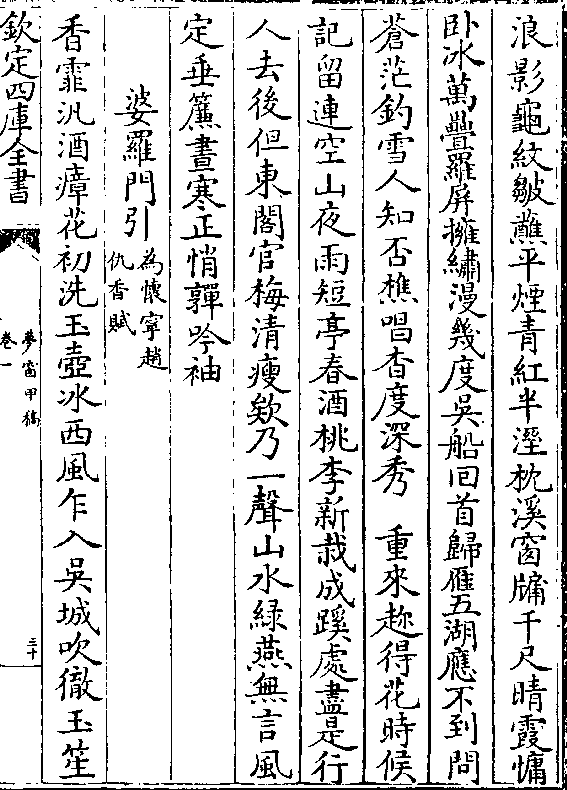 浪影龜紋皺蘸平煙青紅半溼枕溪窗牖千尺晴霞慵
卧冰萬疊羅屏擁繡漫幾度吳船回首歸雁五湖應不到問
蒼茫釣雪人知否樵唱杳度深秀　重來趂得花時候
記留連空山夜雨短亭春酒桃李新栽成蹊處盡是行
人去後但東閣官梅清瘦欸乃一聲山水緑燕無言風
定垂簾晝寒正悄亸吟袖
婆羅門引 為懷寧趙仇香賦
香霏汎酒瘴花初洗玉壺冰西風乍入吳城吹徹玉笙
欽定四庫全書
夢窗甲稿
卷一
三十